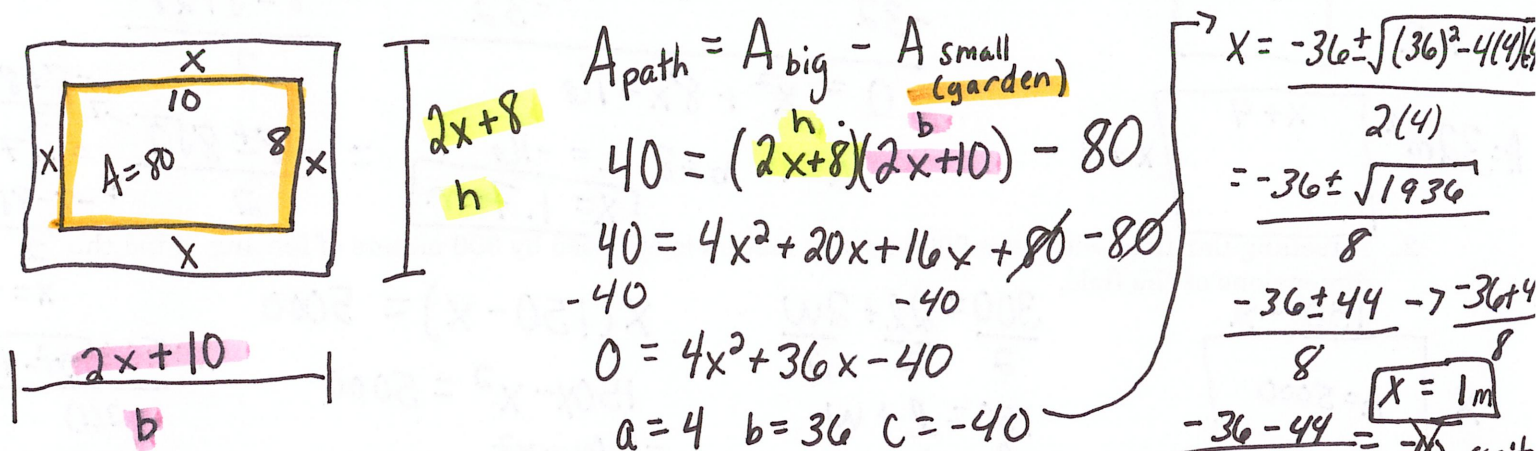 x
10
x
A=80
8
x
x
2x+8
h
2x+10
b
A path = A big - A small
(garden)
h b
40 = (2x+8)(2x+10) - 80
40 = 4x² + 20x + 16x + 80 - 80
-40 -40
0 = 4x² + 36x - 40
a = 4 b = 36 c = -40
x = -36 ± √(36)² - 4(4)(
2(4)
= -36 ± √1936
8
-36 ± 44 → -36+4
8 8
x = 1m
-36 - 44 =